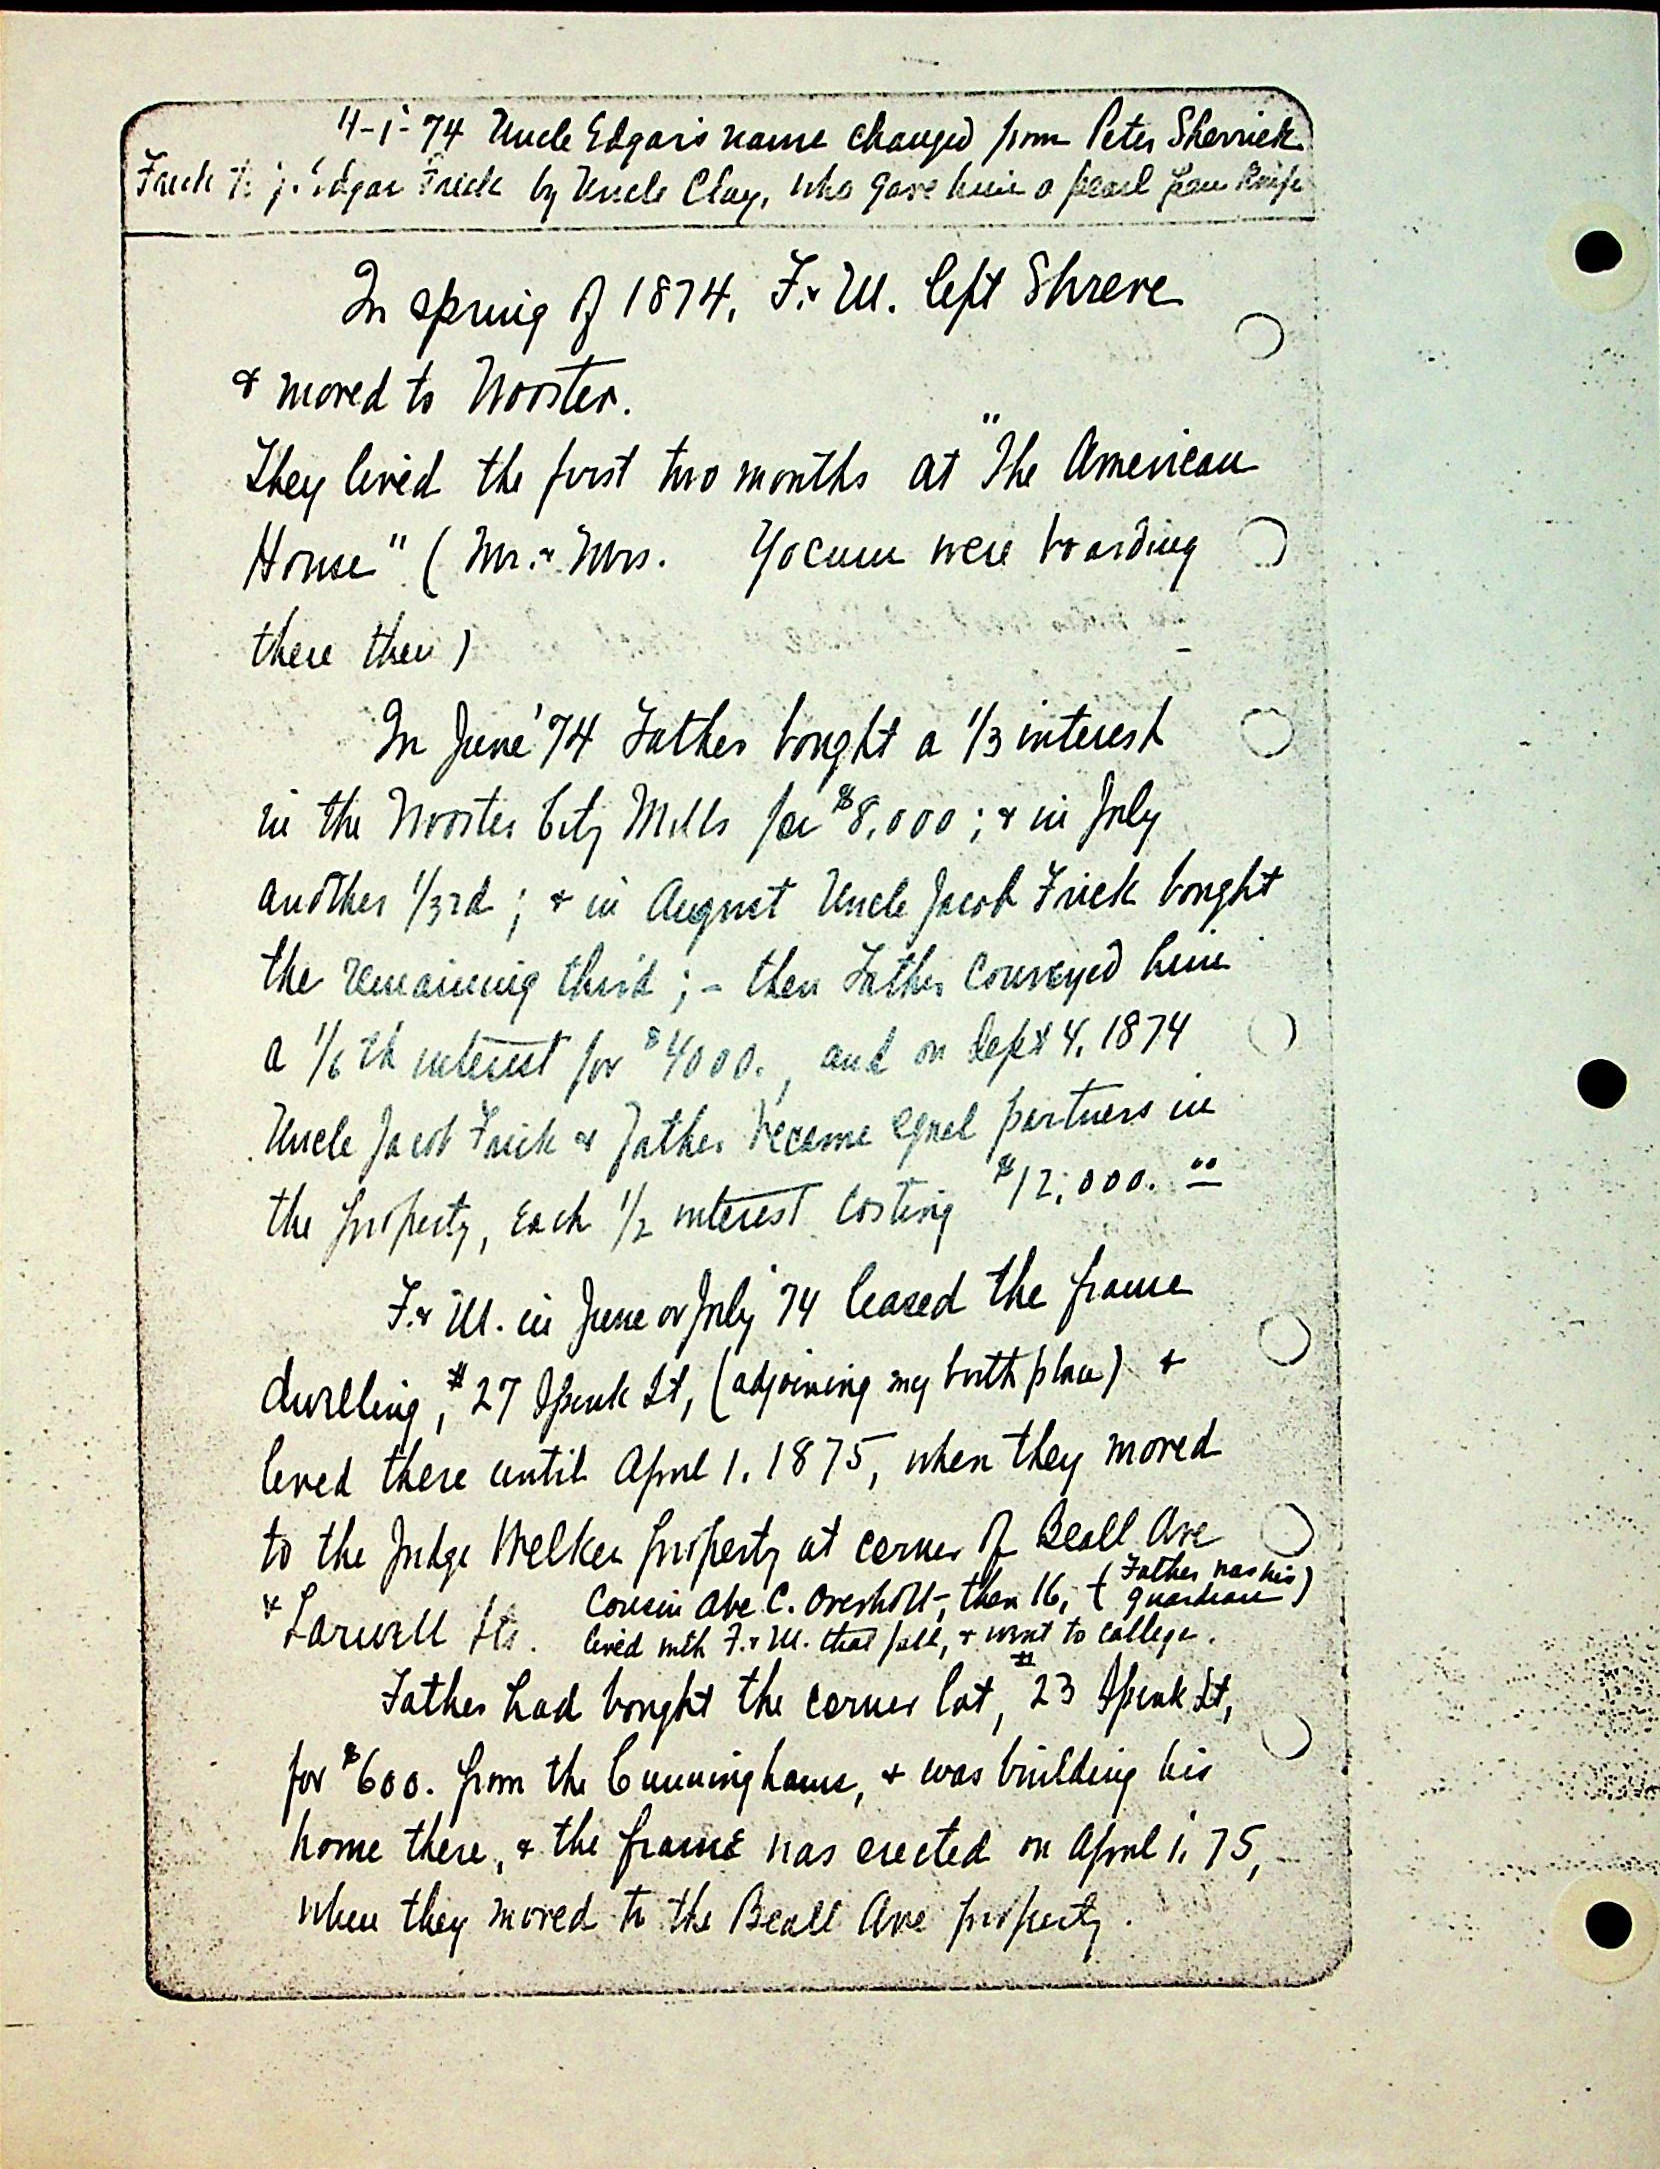 4-1-'74 Uncle Edgar's name changed from Peter Sherrick
Frick to J. Edgar Frick by Uncle Clay, who gave him a pearl pen knife
In spring of 1874, F. & M. left Shreve
& moved to Wooster.
They lived the first two months at "The American
House" (Mr. & Mrs. Yocum were boarding
there then)
In June '74 Father bought a 1/3 interest
in the Wooster City Mills for $8,000; & in July
another 1/3rd; & in August Uncle Jacob Frick bought
the remaining third; - then Father conveyed him
a 1/6th interest for $4000., and on Sept 4, 1874
Uncle Jacob Frick & Father became equal partners in
the property, each 1/2 interest costing $12,000.00
F. & M. in June or July '74 leased the frame
dwelling, #27 Spink St, (adjoining my birth place) &
lived there until April 1, 1875, when they moved
to the Judge Welker property at corner of Beall Ave
& Larwell Sts. Cousin Abe C. Overholt-, then 16, (Father was his guardian)
lived with F. & M. that fall, & went to college.
Father had bought the corner lot, #23 Spink St,
for $600. from the Cunninghams, & was building his
home there, & the frame was erected on April 1, '75,
when they moved to the Beall Ave property.